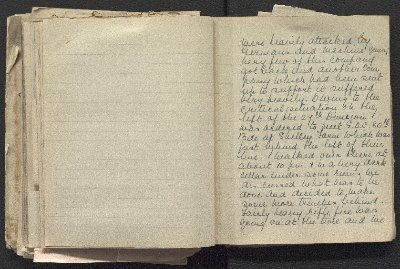 were heavily attacked by
Germans and machine guns,
very few of this company
got back and another Com
pany which had been sent
up to support it suffered
very heavily. Owing to the
critical situation on the
left of the 29th Division I
was ordered to meet G.O.C. 88th
Bde at Shelley Farm which was
just behind the left of their
line. I walked over there at
about 10 p.m. & in a very dark
cellar under some ruins we
discussed what was to be
done and decided to make
some more trenches behind.
Fairly heavy rifle fire was
going on at the time and we